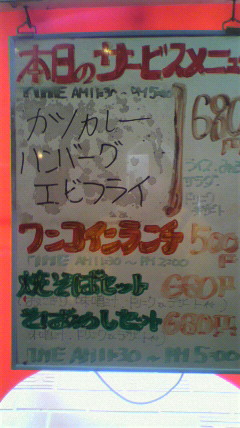 本日のサービスメニュ
TIME AM11:30 ~ PM5:00
カツカレー
ハンバーグ
エビフライ
680円
ライス
サラダ
ドリンク
ワンコインランチ 500円
TIME AM11:30 ~ PM2:00
焼そばセット 680円
そばめしセット 680円
TIME AM11:30 ~ PM5:00